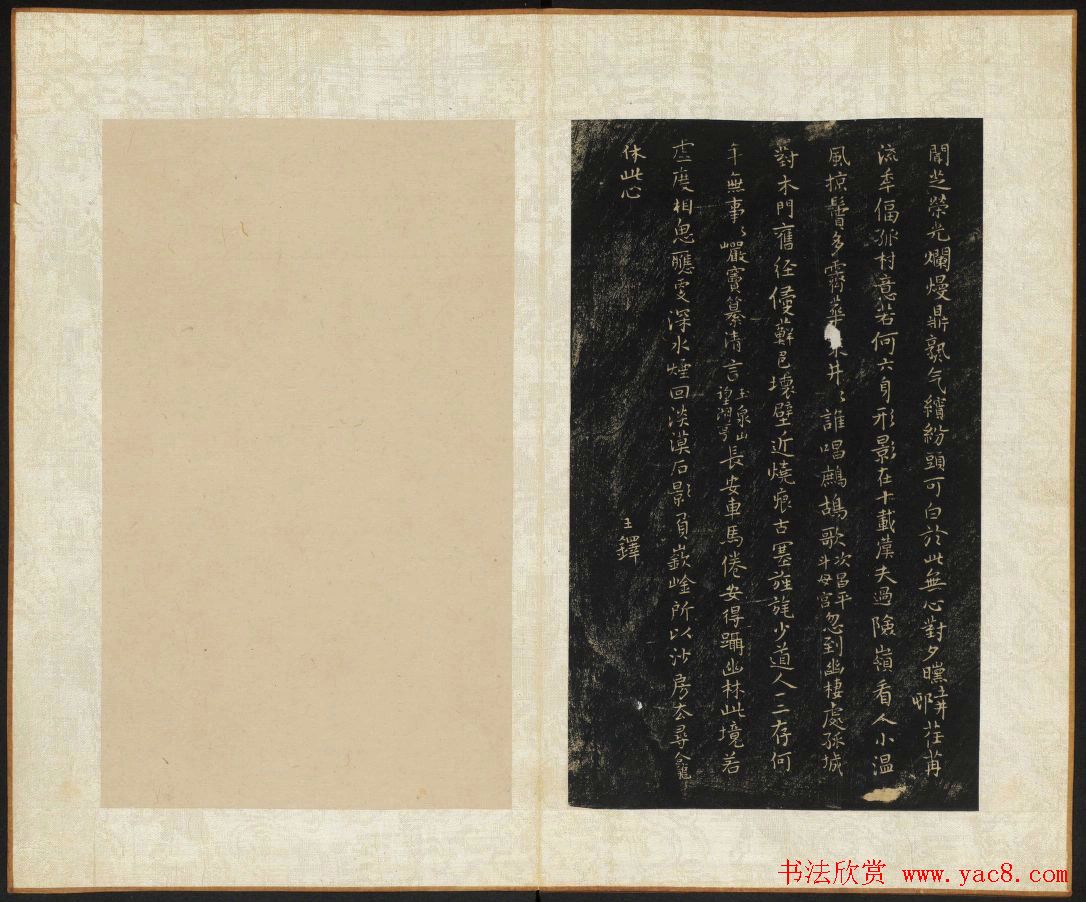 聞芝榮光爛熳鼎氣繽紛頭可白於此無心對夕曛 荏苒
流年偪孤村意若何六身形影在十載僕夫過險嶺看人小溫
風掠鬢多霽華井〻誰唱鷓鴣歌 次昌平斗母宮 忽到幽棲處孤城
對木門舊径侵蘚邑壞壁近燒痕古塞旌旄少道人一二存何
年無事〻巖竇纂清言 玉泉山望湖亭 長安車馬倦安得躡幽林此境若
虛度相思應更深水煙回淡漠石影負嶔崟所以沙房去尋龕
休此心
王鐸
书法欣赏 www.yac8.com